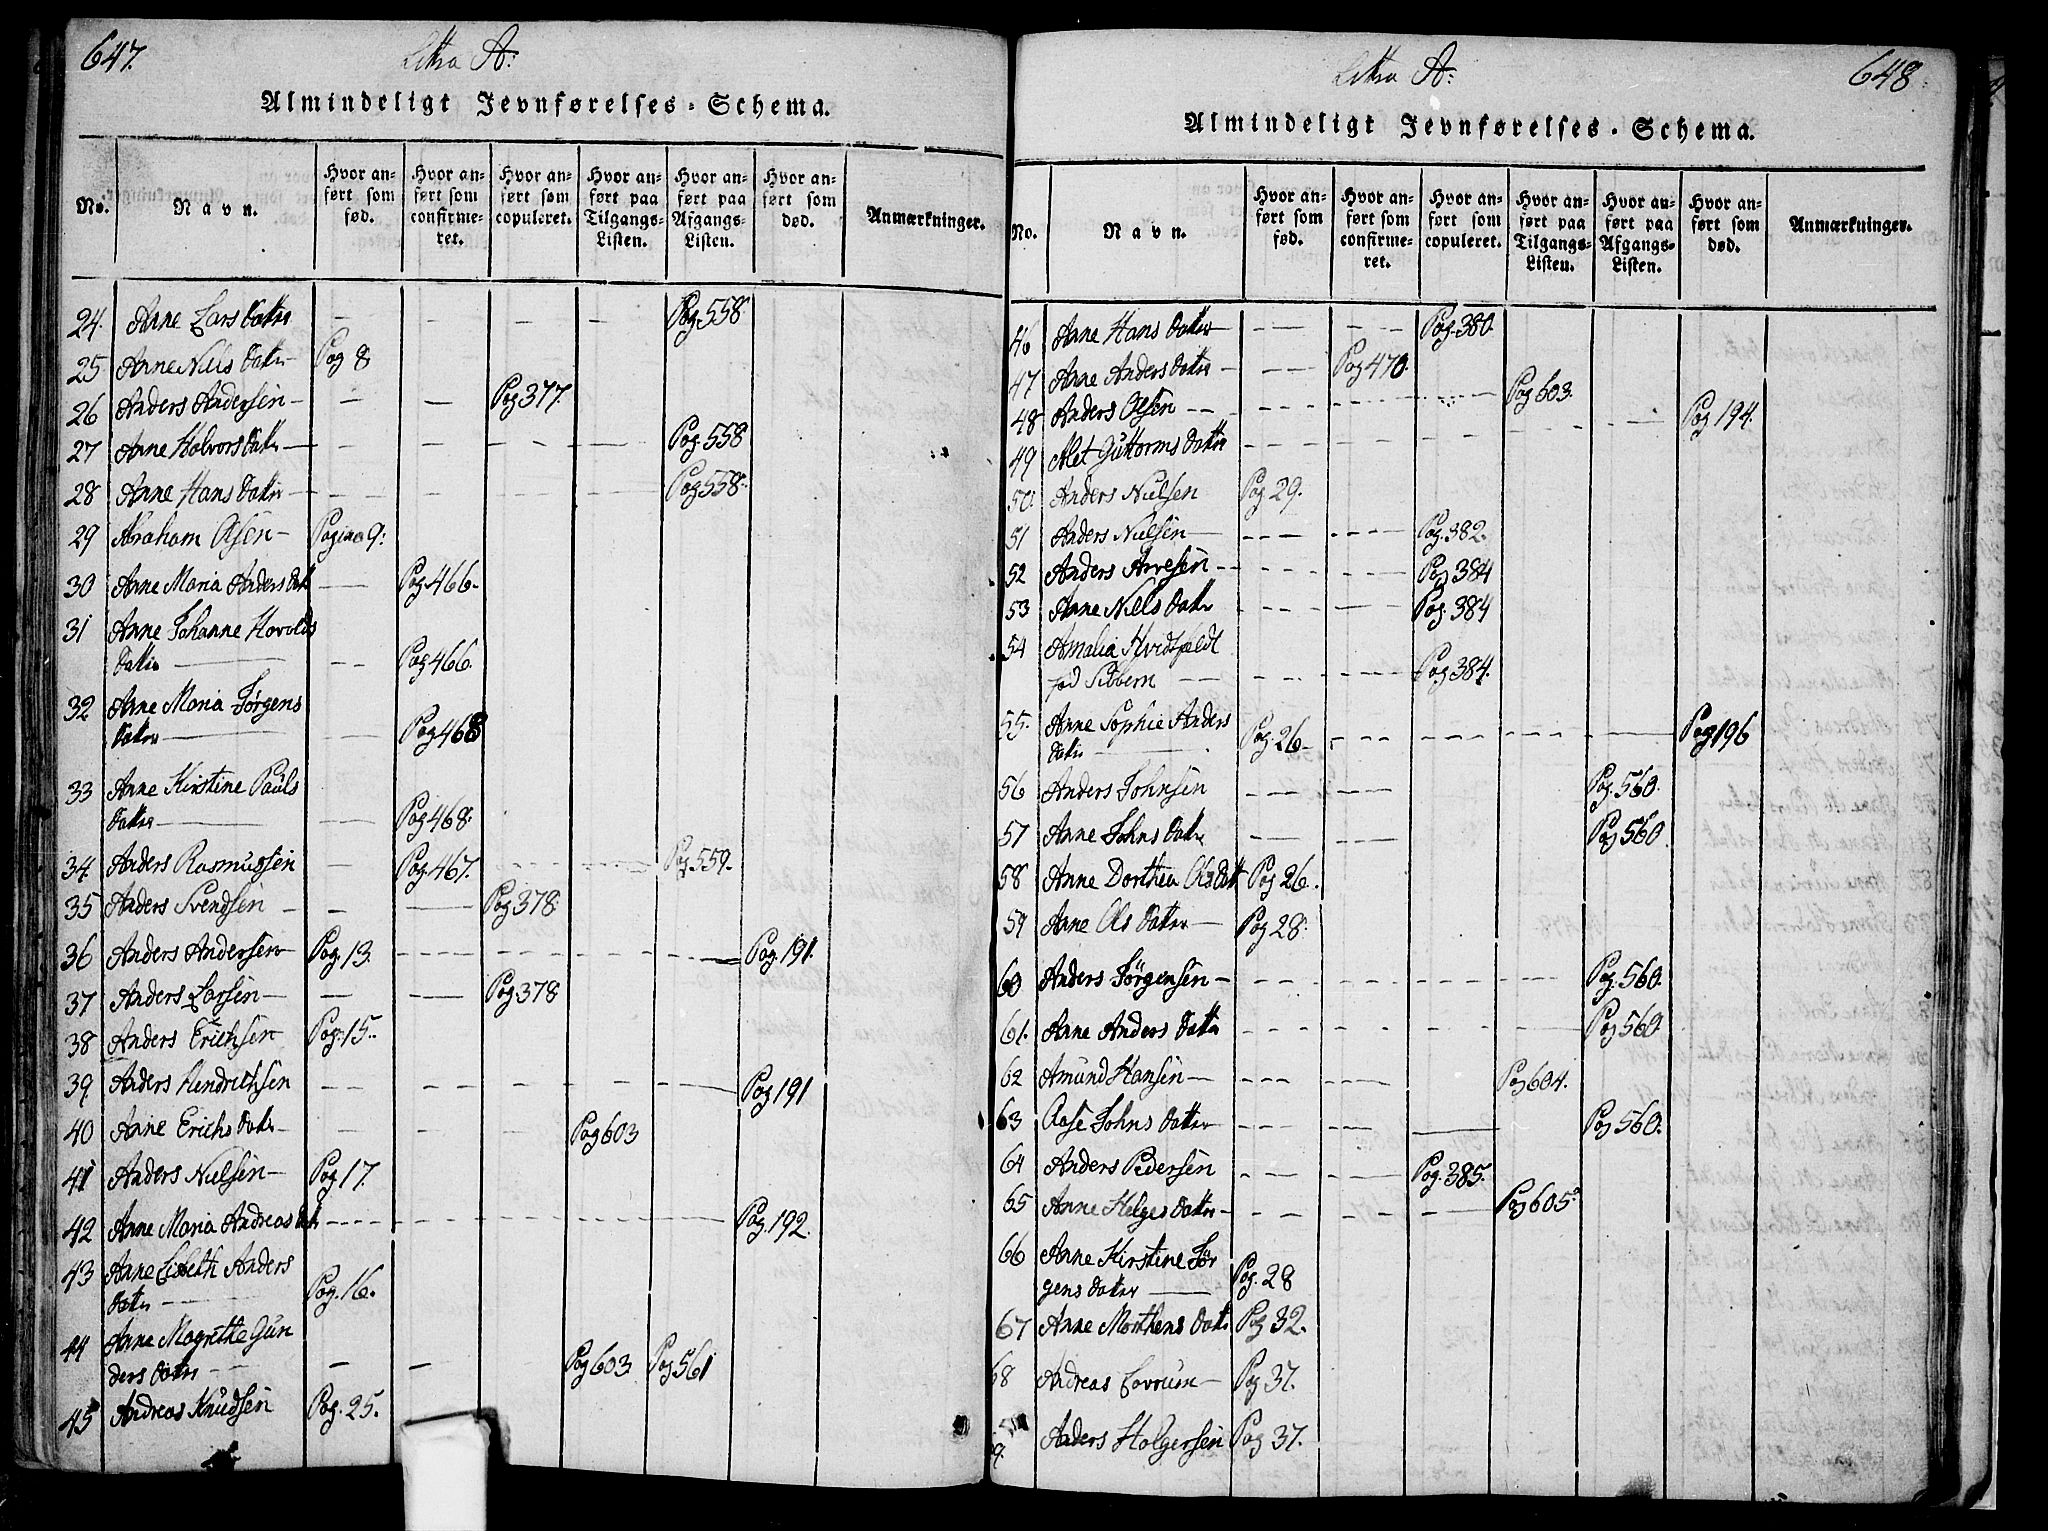 647.
Litra A:
Almindeligt Jevnførelses-Schema.
No. Navn. Hvor anført som fød. Hvor anført som confirmeret. Hvor anført som copuleret. Hvor anført paa Tilgangs-Listen. Hvor anført paa Afgangs-Listen. Hvor anført som død. Anmærkninger.
24. Anne Lars datter - - - - Pag. 558
25 Anne Niels datr Pag 8
26 Anders Andersen - - - Pag 377.
27 Anne Halvors datr - - - - Pag. 558
28 Anne Hans datr - - - - Pag 558.
29 Abraham Olsen - Pagina 9:
30 Anne Maria Anders datt - Pag 466.
31 Anne Johanne Havolds
datter - - Pag 466.
32 Anne Maria Jørgens
datter - - Pag 468
33 Anne Kirstine Pauls
datter - - Pag 468.
34. Anders Rasmussen - Pag 467. - - Pag. 559.
35 Anders Svendsen - - - Pag 378
36 Anders Andersen Pag. 13. - - - - Pag. 191.
37 Anders Larsen - - - Pag 378
38 Anders Erichsen Pag. 15.
39 Anders Hendrichsen - - - - - Pag 191
40 Anne Erichs datr - - - Pag 603
41 Anders Nielsen - Pag 17.
42 Anne Maria Andreas datr - - - - - Pag. 192.
43 Anne Lisbeth Anders
datr - Pag. 16.
44 Anne Magrethe Gun
ders datr - - - Pag 603 Pag 561
45 Andreas Knudsen Pag. 25.
648
Litra A:
Almindeligt Jevnførelses-Schema.
No. Navn. Hvor anført som fød. Hvor anført som confirmeret. Hvor anført som copuleret. Hvor anført paa Tilgangs-Listen. Hvor anført paa Afgangs-Listen. Hvor anført som død. Anmærkninger.
46 Anne Hans datter - - Pag. 380
47 Anne Anders datter - - Pag 470.
48 Anders Olsen - - - - Pag 603.
49 Alet Guttorms datter - - - - - Pag 194.
50. Anders Nielsen Pag 29.
51 Anders Nielsen - - - Pag. 382.
52 Anders Arvesen - - - Pag 384
53 Anne Niels datr - - Pag. 384
54 Amalia Hvidtfeldt
fød Sibbern - - - Pag 384.
55. Anne Sophie Anders
datr - Pag. 26 - - - - Pag 196
56 Anders Johnsen - - Pag. 560.
57 Anne Johns datr - - Pag 560.
58 Anne Dorthea Olsdatt Pag 26.
59 Anne Ols datter - Pag 28.
60 Anders Jørgensen - - - - - Pag. 560.
61. Anne Anders datter - - - - Pag 560
62 Amund Hansen - - - Pag 604.
63 Aase Johns datter - - - Pag 560.
64 Anders Pedersen - - Pag. 385.
65 Anne Helges datter - - - - Pag 605.
66 Anne Kirstine Jør
gens datter - Pag. 28
67 Anne Morthens datr Pag 32.
68 Andreas Lovrum - Pag 37.
9. Anders Holgersen Pag 37.